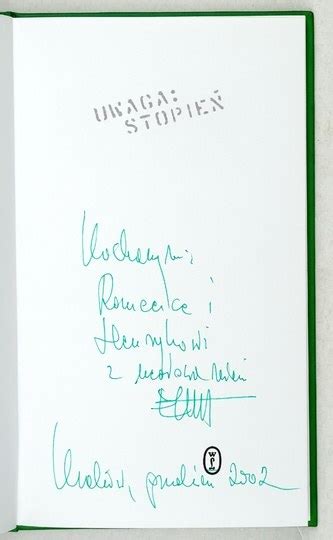 UWAGA:
STOPIEŃ
Kochanym
i
Henrykowi
z
WL
Kraków, grudzień 2002